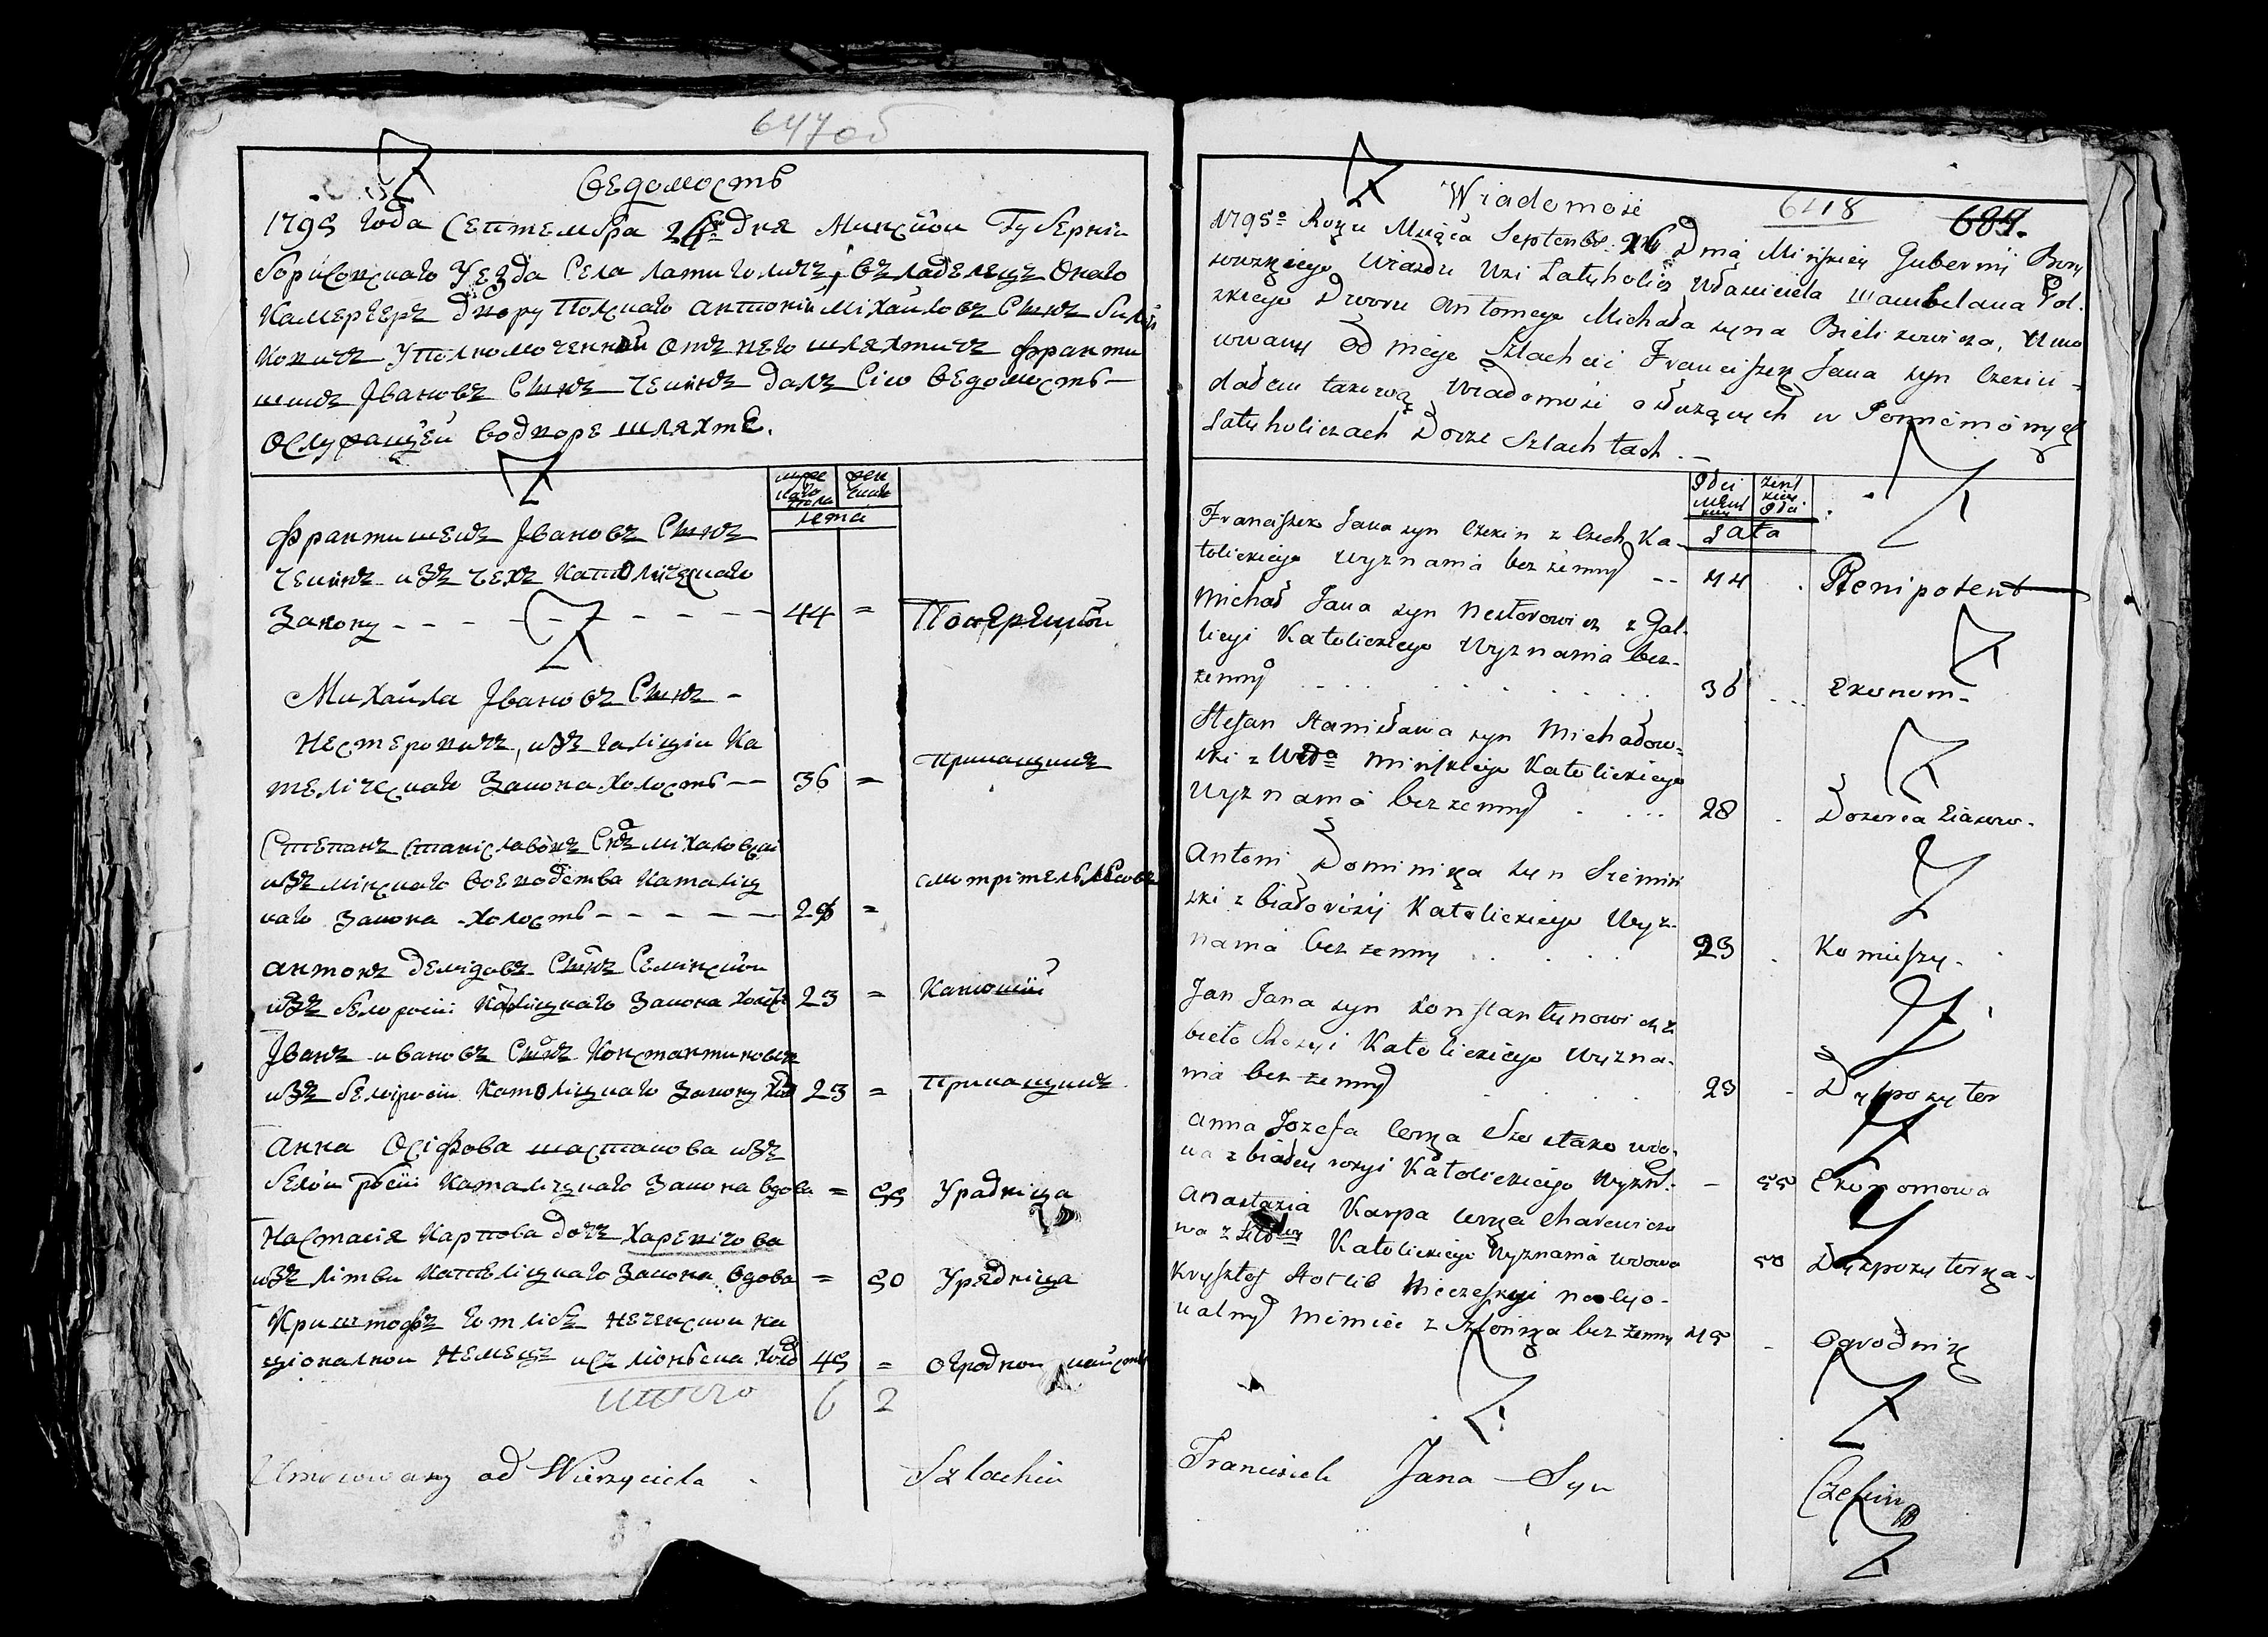 647об
Ведомость
1795 года Септембра 26 дня Минской Губерніи
Борисовскаго Уезда Села Латиголичъ, Владелецъ Онаго
Камергеръ двору Полскаго антоній Міхайловъ Сынъ
Уполномоченный Отъ него шляхтичъ Франти
шекъ Івановъ Сынъ Чекинъ далъ Сію Ведомость—
Ослужащей водворе шляхте.
мужескаго пола
женскаго
лета
Франтишекъ Івановъ Сынъ
Чекинъ изъ Чехъ Католическаго
Закону - - - - - - - 44 =
Михайла Івановъ Сынъ -
Нестеровичъ, изъ Галиціи Ка
толическаго Закона холостъ -- 36 = Прикащикъ
Степанъ Станіславовъ Сынъ Міхаловскій
изъ Мінскаго воеводства Католиц
каго Закона -холостъ - - - - - 28 = смотритель лесовъ
антонъ Демідовъ Сынъ Семінскій
изъ белоросіи Католицкаго Закона холостъ 23 = Канюшій
Іванъ ивановъ Сынъ Константиновичъ
изъ белоросіи Католицкаго Закону холо 23 = Прикащикъ
анна Осіфова шастакова изъ
белой росіи Католицкаго Закона вдова = 55 Урадница
Настасія Карпова дочь Харевічова
изъ літвы Католицкаго Закона вдова = 50 Урядница
Криштофъ Готлибъ на
ціоналной Немецъ холо 45 = Огродной
итого 6 2
Umocowany od Szlachcic
6118
687.
Wiadomość
1795º Roku Miesiąca Septembr. 26 Dnia Mińskiey Gubernij Bory
sowskiego Uiazdu Wsi Łatyholicz Właściciela Szambelana Pol.
skiego Dworu Antoniego Michała syna Bielikowicza, Umo
cowany Od niego Szlachcic Franciszek Jana syn Czekin =
dałem takową Wiadomość o służących w
Łatyholiczach Dworze Szlachtach . -
Płci Męskiey
Żeńskiey Płci
Lata
Franciszek Jana syn Czekin z Czech Ka-
tolickiego wyznania bez żenny -- 44 . Plenipotent
Michał Jana syn Nestorowicz z Gal-
licyi Katolickiego Wyznania bez-
żenny . . . . . . . . 36 . . . Ekonom-
Stefan Stanisława syn Michałow-
ski z Wdª Mińskiego Katolickiego
Wyznania bez żenny . . . . 28 . Dozorca
Antoni Dominika syn Siemiń
ski z białorusij Katolickiego Wyz-
nania bez żenny . . . . . 23 . Koniuszy.
Jan Jana syn Konstantynowicz z
bieło Rossyi Katolickiego Wyzna-
nia bez żenny . . . . 23 - Dyspozytor
Anna Jozefa Corka Szostako wdo-
wa z białey rossyi Katolickiego Wyzn: - 55 Ekonomowa
Anastazia Karpa Corka Charewiczo
wa z Litwy Katolickiego Wyznania wdowa 50 Dyspozytorka-
Krysztof Gotlib nacyo-
nalny Niemiec z bez żenny 45 . Ogrodnik
Franciszek Jana Syn Czekin